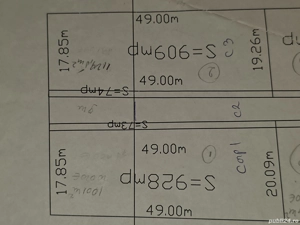 49.00m
17.85m
S=909mp
C3
19.26m
49.00m
S=74mp
C2
S=73mp
49.00m
17.85m
1
Cop1
S=928mp
20.09m
49.00m
publi24.ro